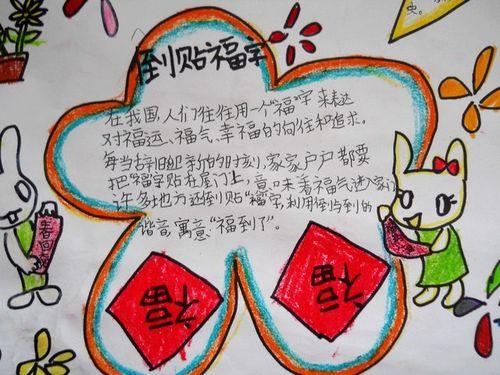 央。
倒贴福字
在我国,人们往往用一个"福"字来表达
对福运、福气、幸福的向往和追求。
每当辞旧迎新的时刻,家家户户都要
把"福"字贴在屋门上,意味着福气进入家门
许多地方还倒贴"福"字,利用倒与到的
谐音,寓意:"福到了"。
春回
福
福